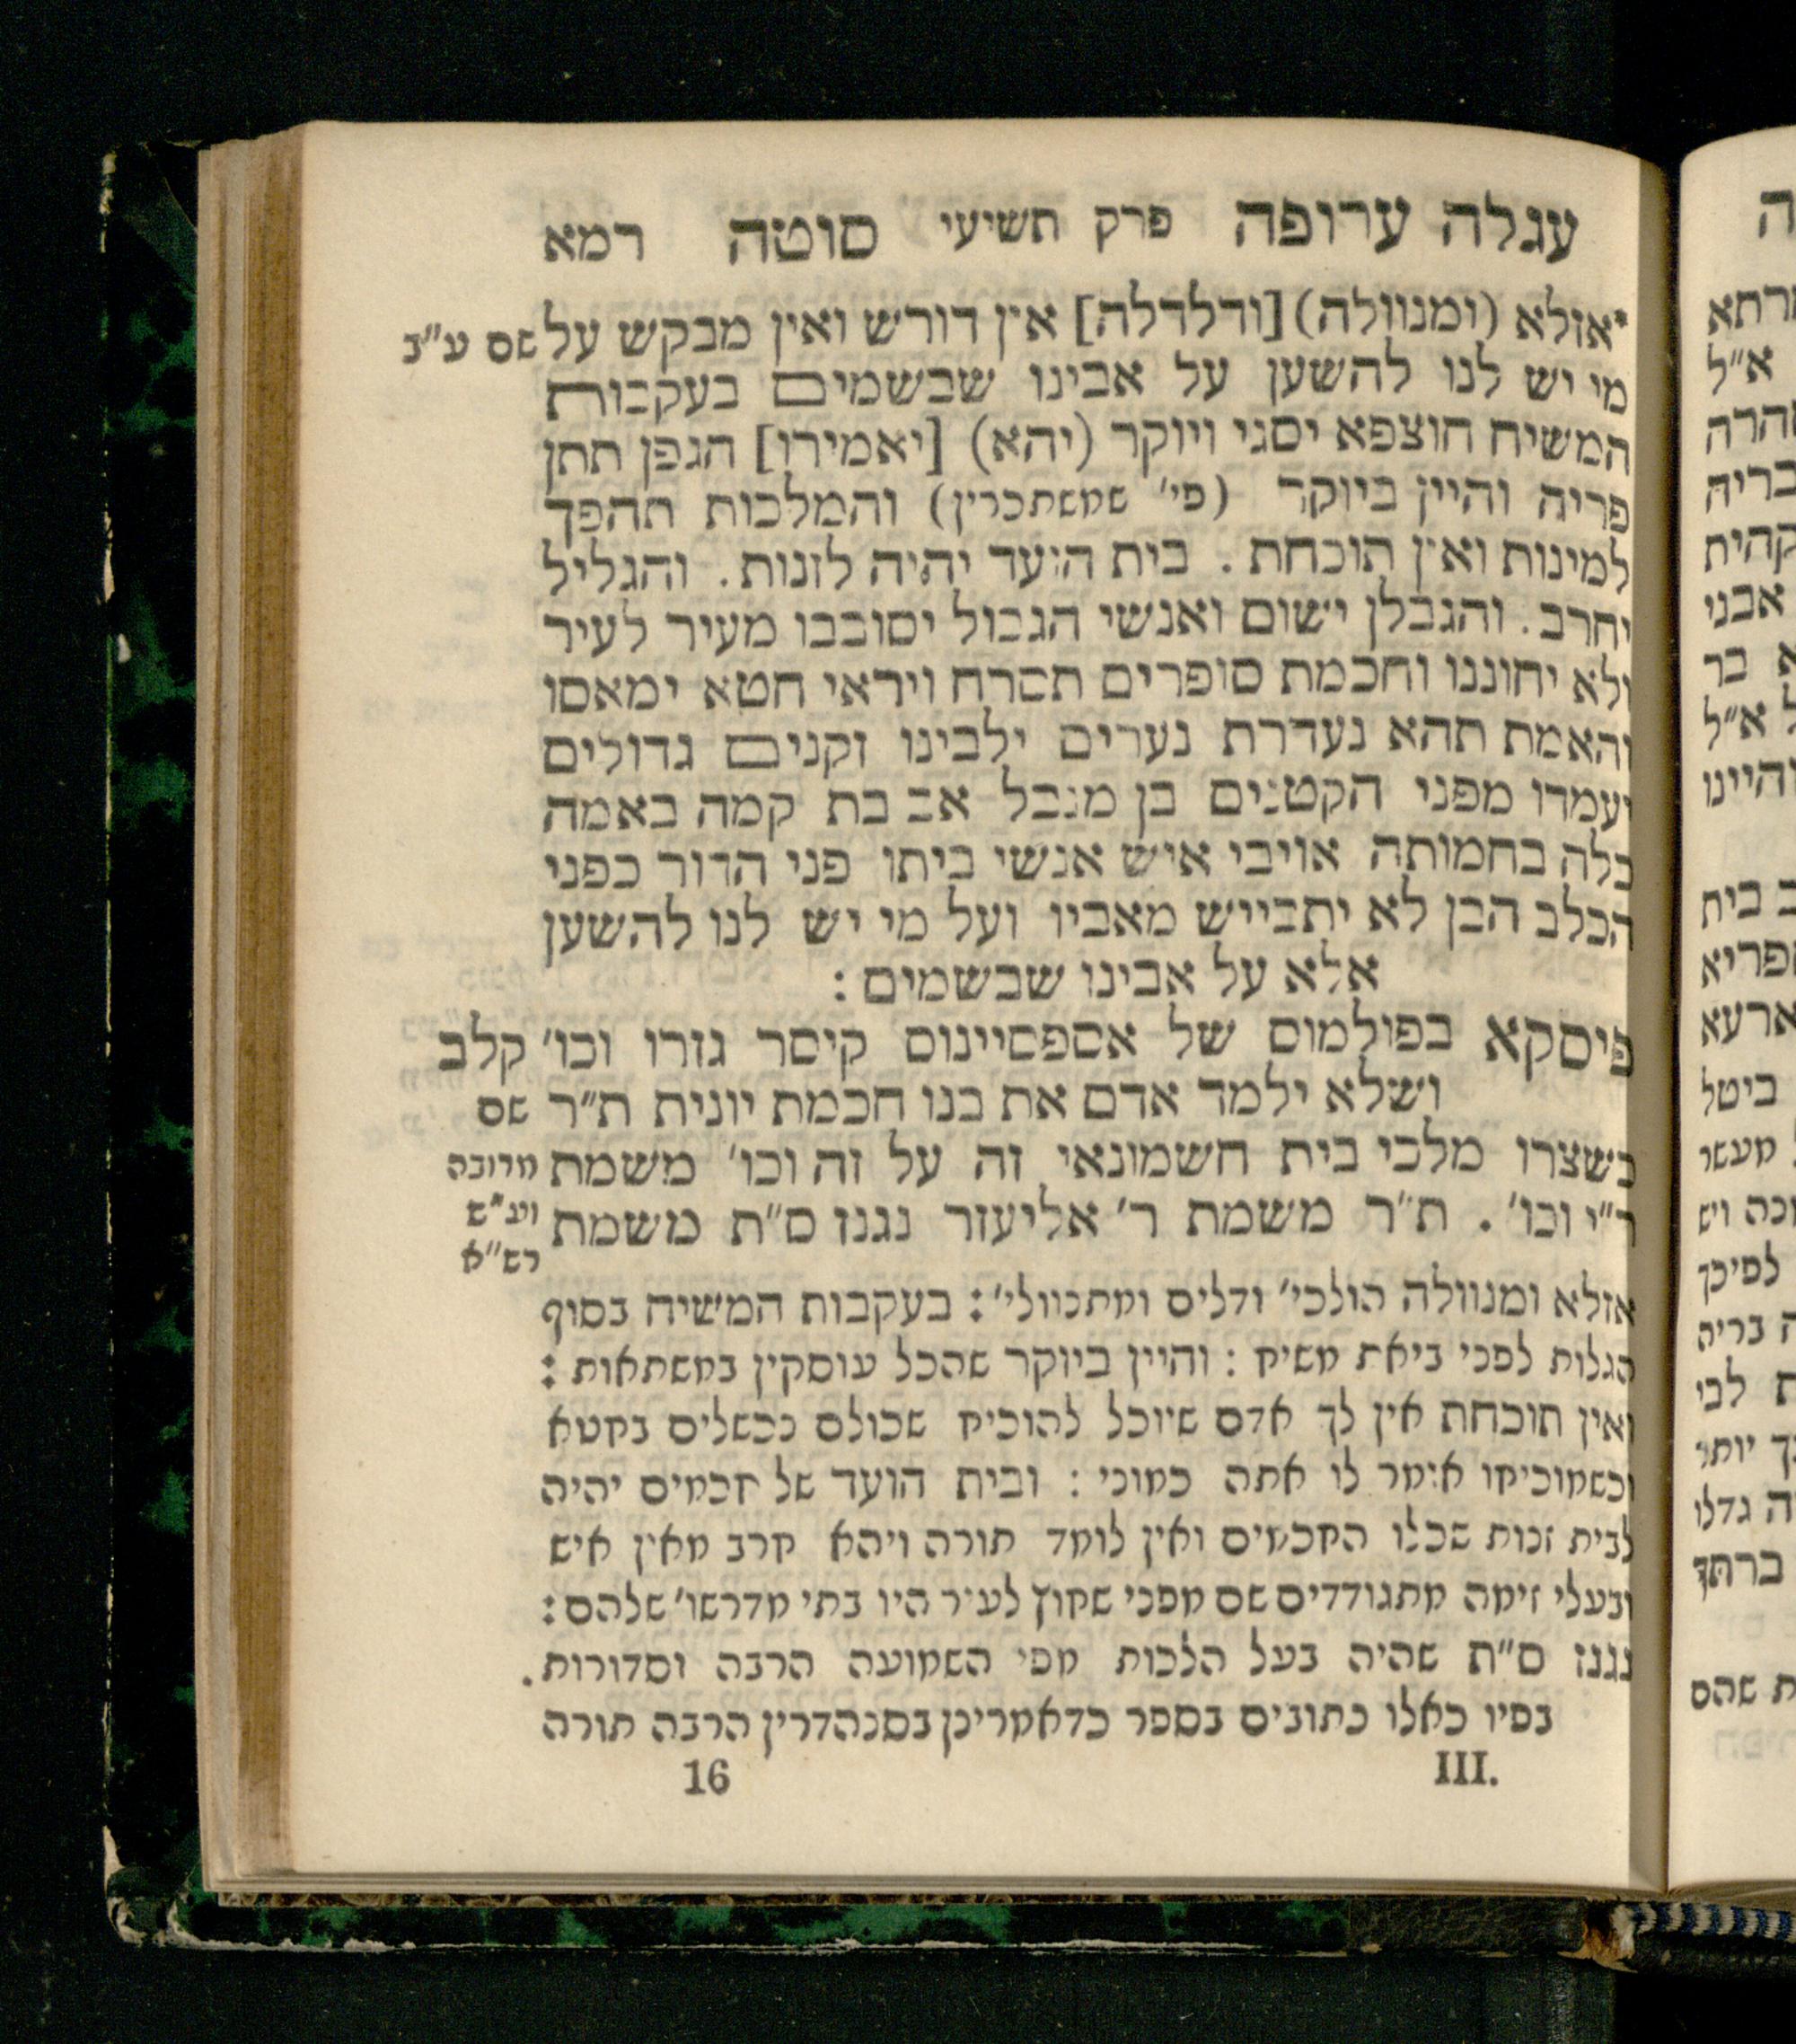 עגלה ערופה פרק תשיעי סוטה רמא
אזלא (ומנוולה) [ודלדלה] אין דורש ואין מבקש על שם ע"ב
מי יש לנו להשען על אבינו שבשמים בעקבות
המשיח חוצפא יסגי ויוקר (יהא) [יאמירו] הגפן תתן
פריה והיין ביוקר (פי' שמשתכרין) והמלכות תהפך
למינות ואין תוכחת. בית הועד יהיה לזנות. והגליל
יחרב. והגבלן ישום ואנשי הגבול יסובבו מעיר לעיר
ולא יחוננו וחכמת סופרים תסרח ויראי חטא ימאסו
והאמת תהא נעדרת נערים ילבינו זקנים גדולים
יעמדו מפני הקטנים בן מנבל אב בת קמה באמה
כלה בחמותה אויבי איש אנשי ביתו פני הדור כפני
הכלב הבן לא יתבייש מאביו ועל מי יש לנו להשען
אלא על אבינו שבשמים :
פיסקא בפולמוס של אספסיינוס קיסר גזרו וכו' קלב
ושלא ילמד אדם את בנו חכמת יונית ת"ר שם
כשצרו מלכי בית חשמונאי זה על זה וכו' משמת מרובה
ר"י וכו'. ת"ר משמת ר' אליעזר נגנז ס"ת משמת וע"ש
רש"א
אזלא ומנוולה הולכי' ודלים ומתנוולי' : בעקבות המשיח בסוף
הגלות לפני ביאת משיח : והיין ביוקר שהכל עוסקין במשתאות :
ואין תוכחת אין לך אדם שיוכל להוכיח שכולם נכשלים בחטא
וכשמוכיחו אומר לו אתה כמוני : ובית הועד של חכמים יהיה
לבית זנות שכלו החכמים ואין לומד תורה ויהא חרב מאין איש
ובעלי זימה מתגודדים שם מפני שחוץ לעיר היו בתי מדרשו' שלהם :
נגנז ס"ת שהיה בעל הלכות מפי השמועה הרבה וסדורות.
בפיו כאלו כתובים בספר כדאמרינן בסנהדרין הרבה תורה
III. 16